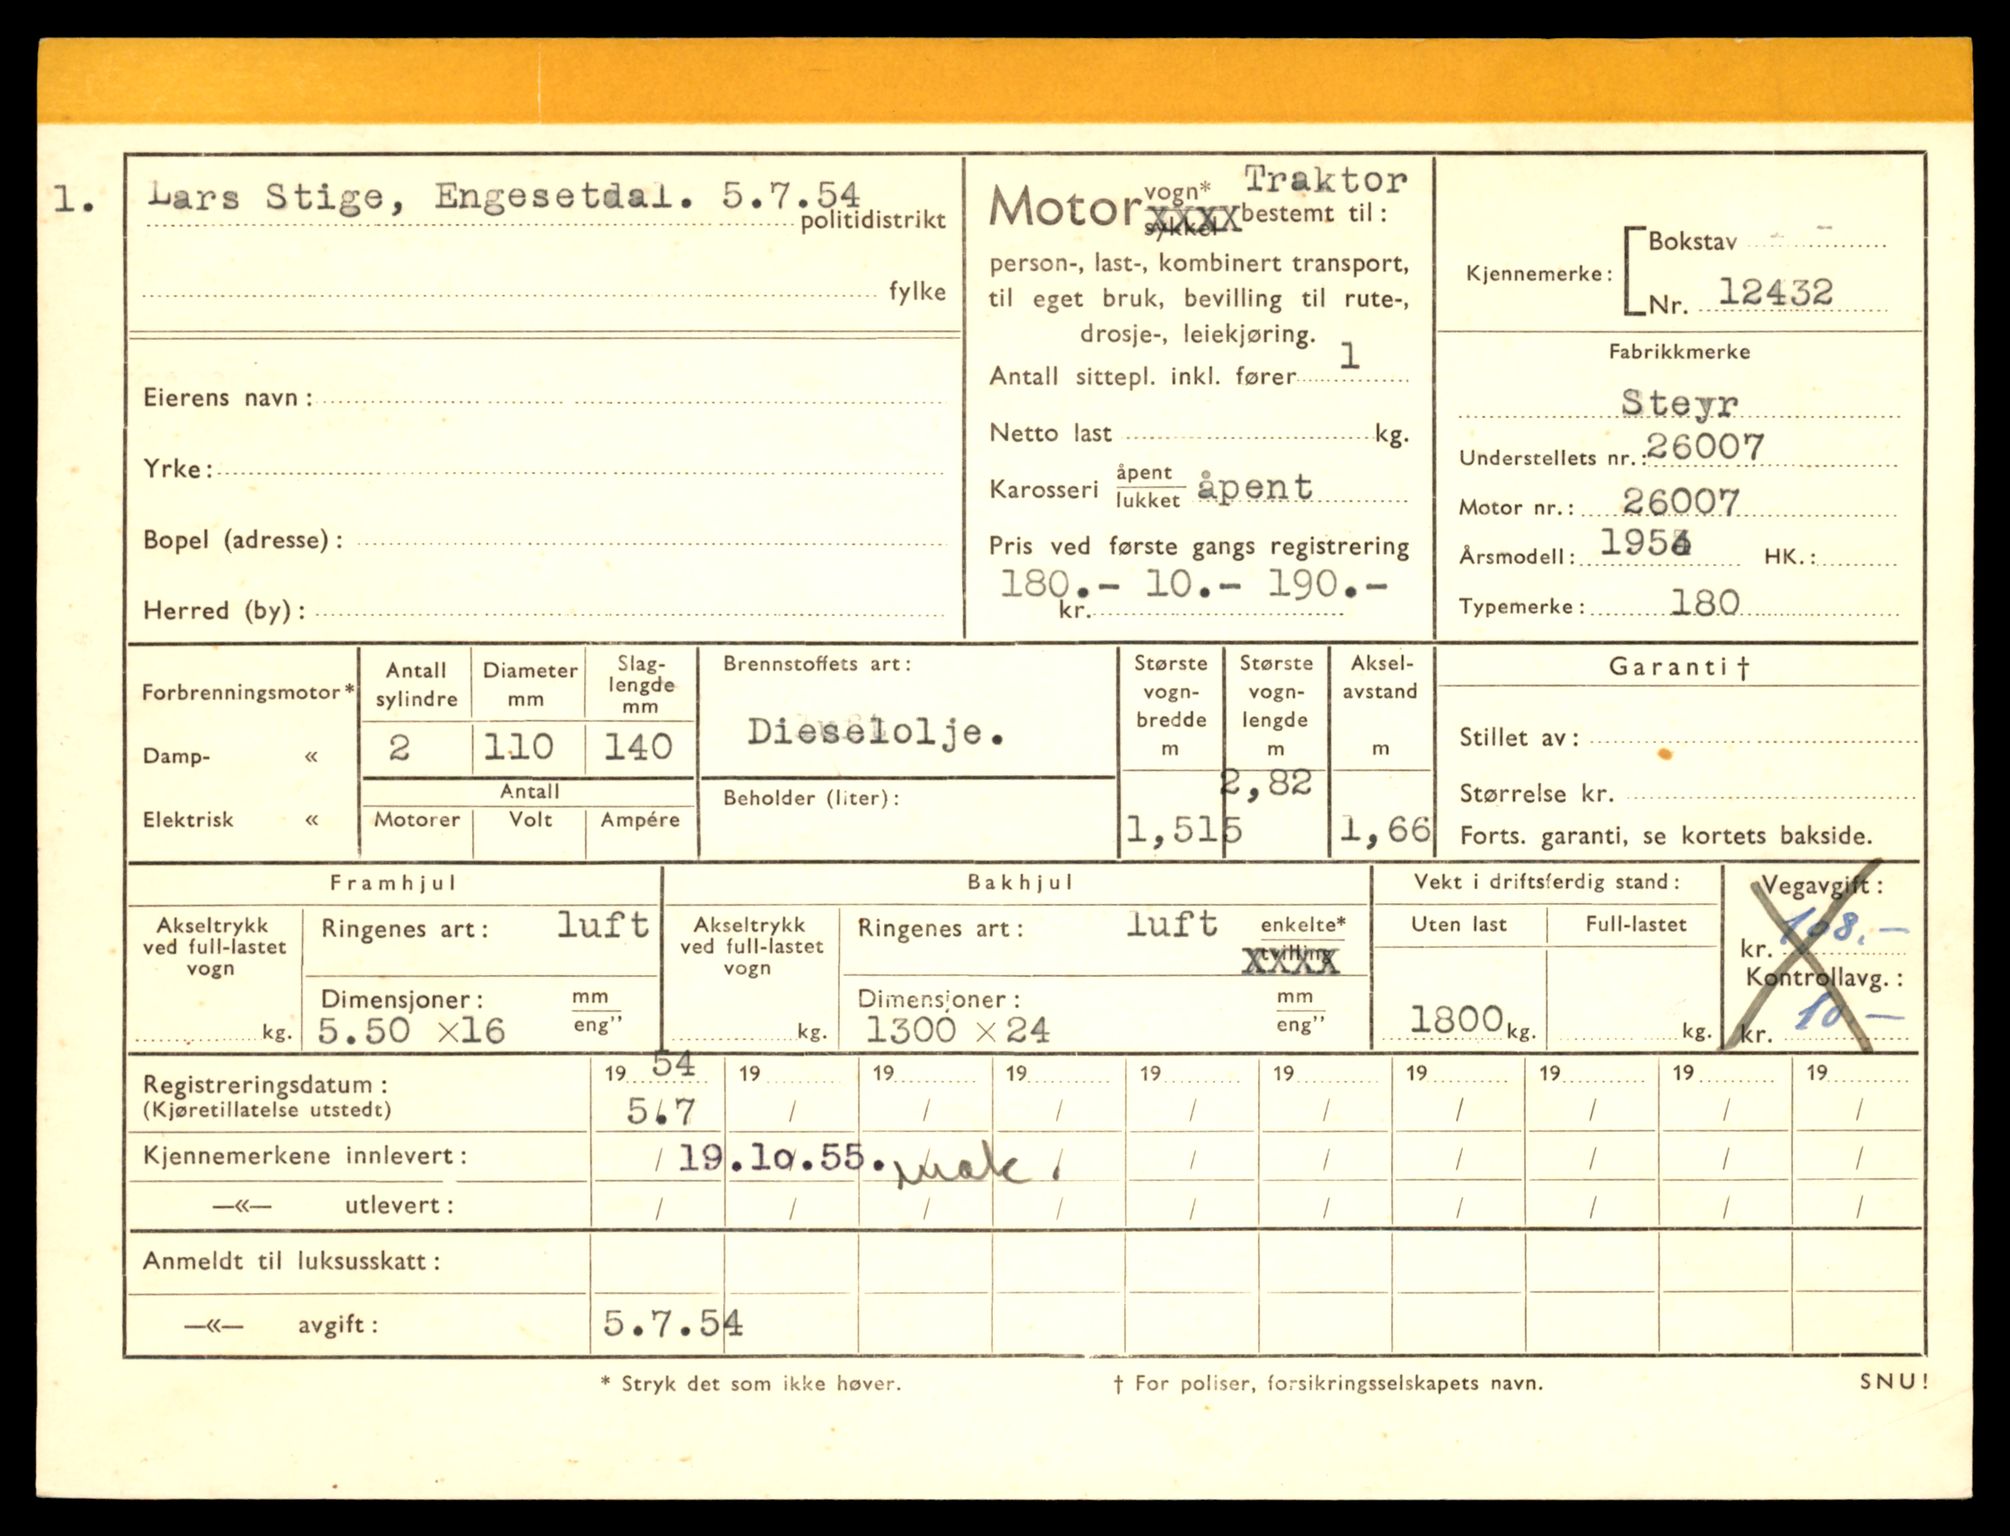 1. Lars Stige, Engesetdal. 5.7.54
politidistrikt
fylke
Eierens navn:
Yrke:
Bopel (adresse):
Herred (by):
Traktor
Motor vogn* bestemt til:
sykkel
person-, last-, kombinert transport,
til eget bruk, bevilling til rute-,
drosje-, leiekjøring.
Antall sittepl. inkl. fører 1
Netto last kg.
Karosseri åpent lukket åpent
Pris ved første gangs registrering
180.- 10.- 190.-
kr.
Kjennemerke: Bokstav
Nr. 12432
Fabrikkmerke
Steyr
Understellets nr.: 26007
Motor nr.: 26007
Årsmodell: 1954 HK.:
Typemerke: 180
Forbrenningsmotor*
Damp- «
Elektrisk «
Antall sylindre
Diameter mm
Slag-lengde mm
2 110 140
Antall
Motorer Volt Ampére
Brennstoffets art:
Dieselolje.
Beholder (liter):
Største vogn-bredde m
1,515
Største vogn-lengde m
2,82
Aksel-avstand m
1,66
Garanti †
Stillet av:
Størrelse kr.
Forts. garanti, se kortets bakside.
Framhjul
Akseltrykk ved full-lastet vogn
kg.
Ringenes art: luft
Dimensjoner: mm eng”
5.50 x16
Bakhjul
Akseltrykk ved full-lastet vogn
kg.
Ringenes art: luft enkelte*
tvilling
Dimensjoner: mm eng”
1300 x 24
Vekt i driftsferdig stand:
Uten last Full-lastet
1800 kg. kg.
Vegavgift:
kr. 108.-
Kontrollavg.:
kr. 10.-
Registreringsdatum: 19 54 19 19 19 19 19 19 19 19 19
(Kjøretillatelse utstedt) 5.7 / / / / / / / / /
Kjennemerkene innlevert: / 19.10.55. mak. / / / / / /
—«— utlevert: / / / / / / / / / /
Anmeldt til luksusskatt:
—«— avgift: 5.7.54
* Stryk det som ikke høver. † For poliser, forsikringsselskapets navn. SNU!